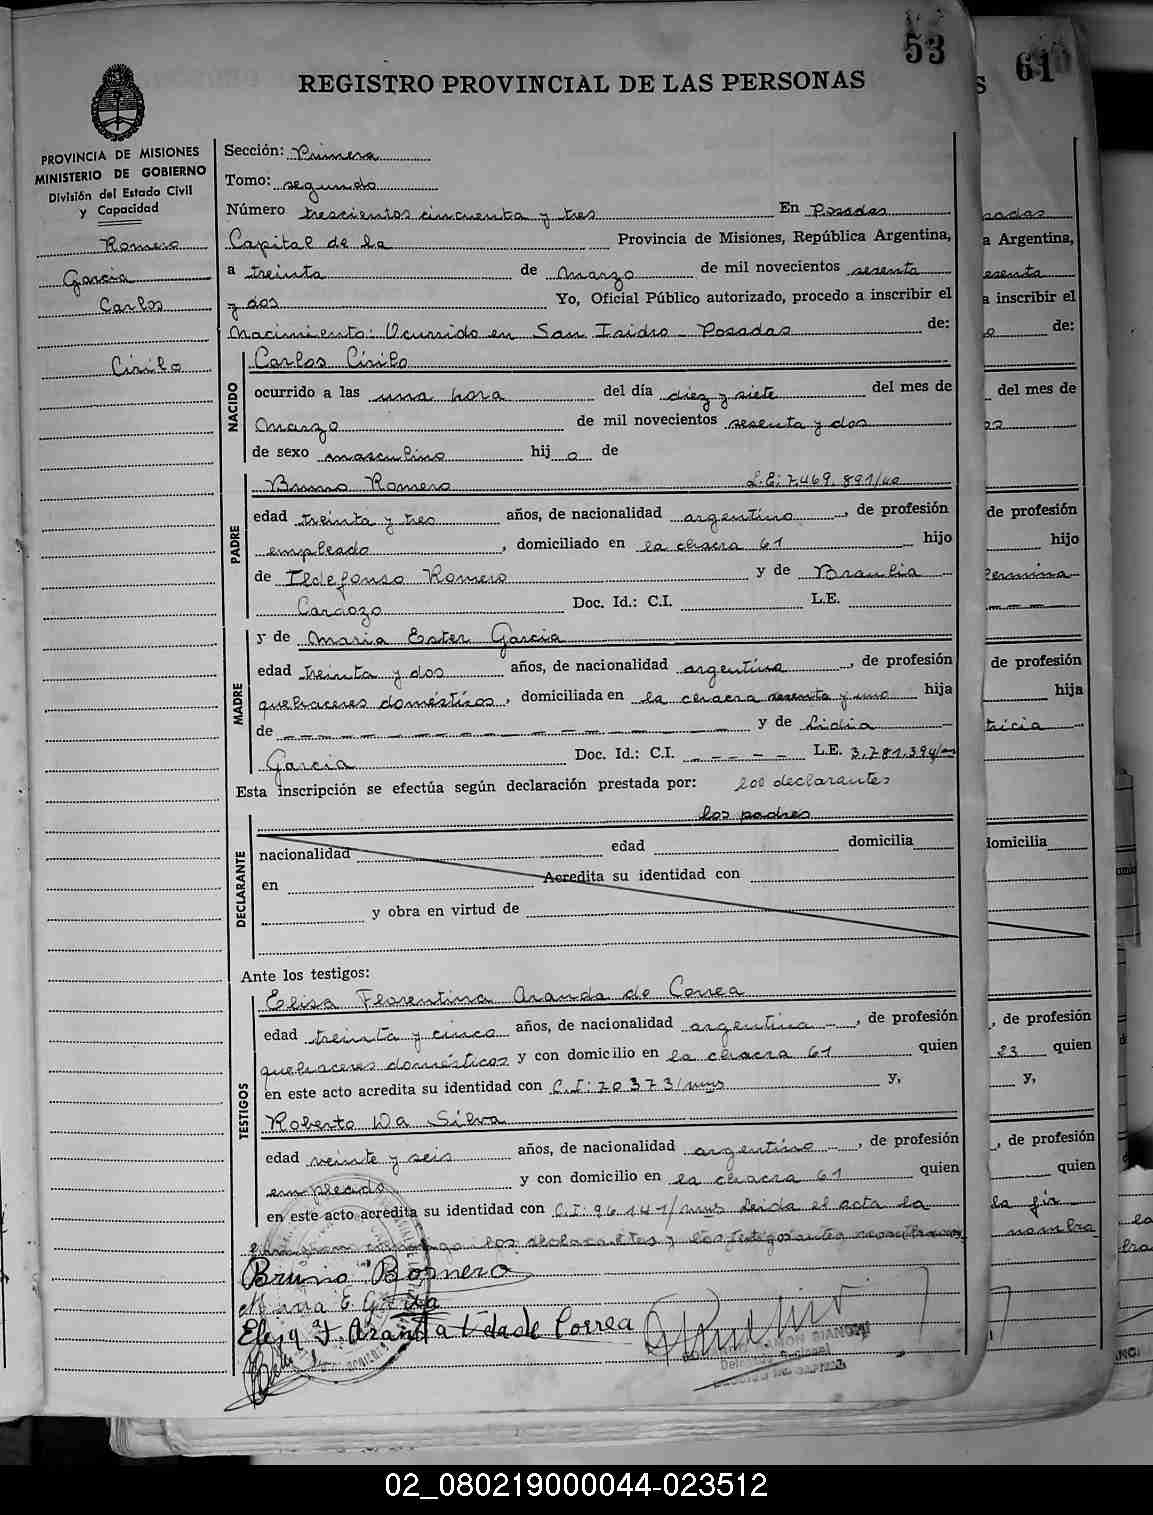 53
61
REGISTRO PROVINCIAL DE LAS PERSONAS
S
PROVINCIA DE MISIONES
MINISTERIO DE GOBIERNO
División del Estado Civil
y Capacidad
Romero
Garcia
Carlos
Cirilo
Sección: Primera
Tomo: segundo
Número trescientos cincuenta y tres En Posadas
Capital de la Provincia de Misiones, República Argentina,
a treinta de marzo de mil novecientos sesenta
y dos Yo, Oficial Público autorizado, procedo a inscribir el
Nacimiento: Ocurrido en San Isidro - Posadas de:
NACIDO
Carlos Cirilo
ocurrido a las una hora del día diez y siete del mes de
marzo de mil novecientos sesenta y dos
de sexo masculino hij o de
PADRE
Bruno Romero L.E: 7.469.891/
edad treinta y tres años, de nacionalidad argentino, de profesión
empleado, domiciliado en la chacra 61 hijo
de Ildefonso Romero y de Braulia
Cardozo Doc. Id.: C.I. L.E.
MADRE
y de Maria Ester Garcia
edad treinta y dos años, de nacionalidad argentina, de profesión
quehaceres doméstícos, domiciliada en la chacra sesenta y uno hija
de - - - - - - - - y de Lidia
Garcia Doc. Id.: C.I. - - - - L.E. 3.781.394/
Esta inscripción se efectúa según declaración prestada por: los declarantes
los padres
DECLARANTE
nacionalidad edad domicilia
en Acredita su identidad con
y obra en virtud de
Ante los testigos:
TESTIGOS
Elisa Florentina Aranda de Correa
edad treinta y cinco años, de nacionalidad argentina -, de profesión
quehaceres domésticos y con domicilio en la chacra 61 quien
en este acto acredita su identidad con C.I: 20373/mns y,
Roberto Da Silva
edad veinte y seis años, de nacionalidad argentino -, de profesión
empleado y con domicilio en la chacra 61 quien
en este acto acredita su identidad con C.I: 96.141/mns Leida el acta la
los declarantes y los testigos
Bruno Romero
Maria E. Garcia
Aranda de Correa
sadas
a Argentina,
esenta
a inscribir el
o de:
del mes de
de profesión
hijo
de profesión
hija
tricia
domicilia
, de profesión
23 quien
y,
, de profesión
quien
la fir
nombra
02_080219000044-023512